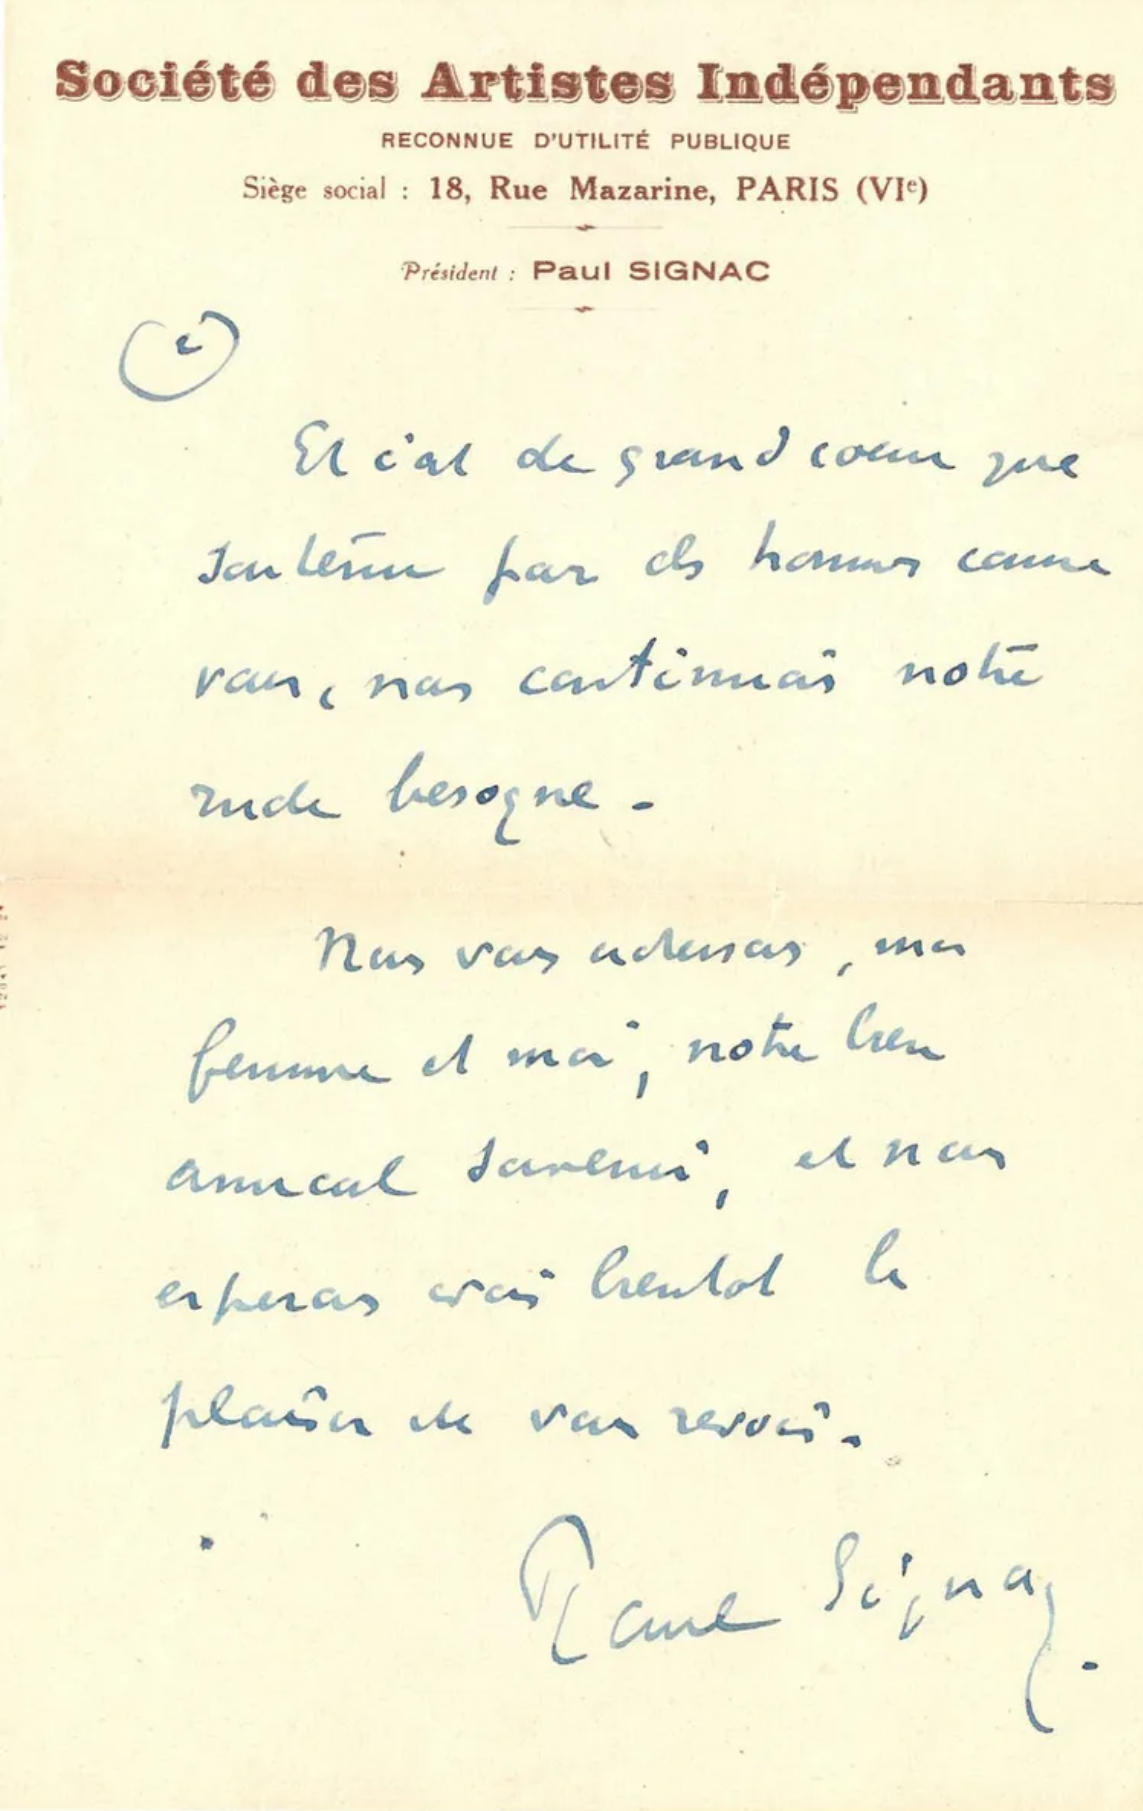 Société des Artistes Indépendants
RECONNUE D'UTILITÉ PUBLIQUE
Siège social : 18, Rue Mazarine, PARIS (VIe)
Président : Paul SIGNAC
Et c'est de grand coeur que
soutenu par des hommes comme
vous, nous continuons notre
rude besogne -
Nous vous adressons, ma
femme et moi, notre bien
amical souvenir, et nous
esperons avoir bientot le
plaisir de vous revoir.
Paul Signac